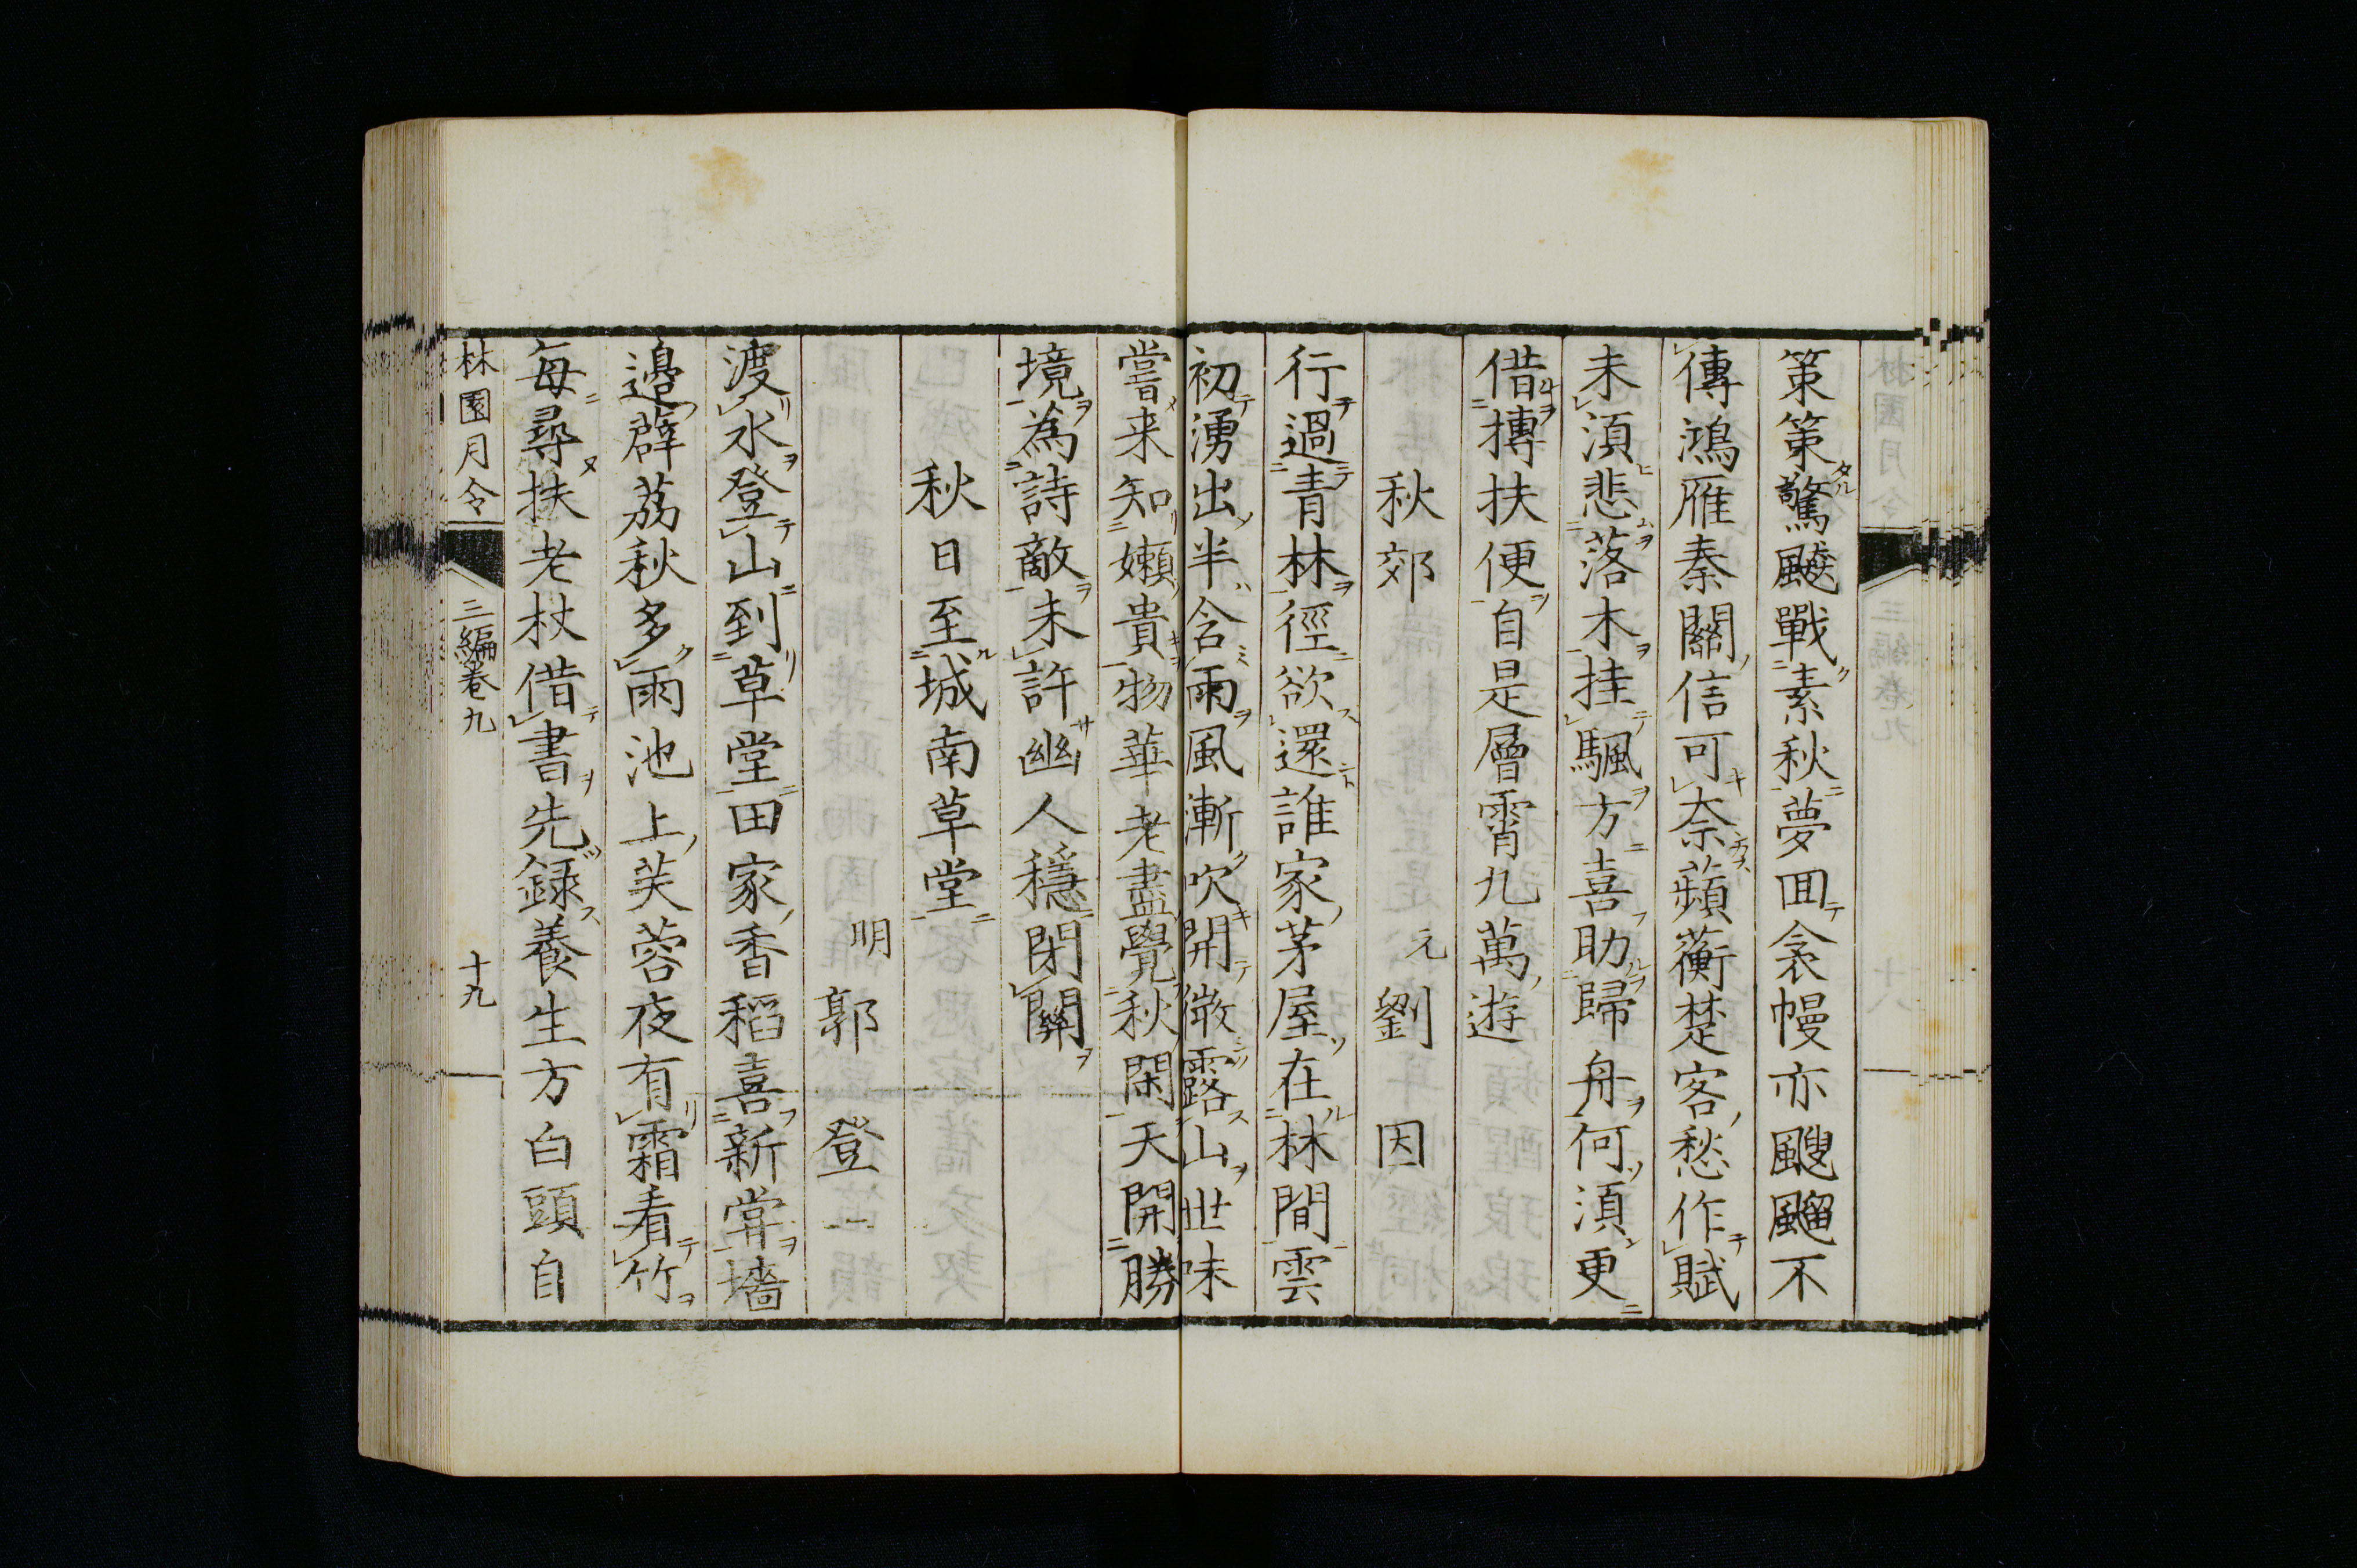 策策驚飈戰素秋夢回衾幔亦颼飀不
傳鴻雁秦關信可奈蘋蘅楚客愁作賦
未須悲落木挂颿方喜助歸舟何須更
借摶扶便自是層霄九萬遊
秋郊
元 劉因
行過青林徑欲還誰家茅屋在林間雲
初湧出半含雨風漸吹開微露山世味
嘗来知嬾貴物華老盡覺秋閑天開勝
境為詩敵未許幽人穩閉關
秋日至城南草堂
明 郭登
渡水登山到草堂田家香稻喜新嘗墻
邉薜荔秋多雨池上芙蓉夜有霜看竹
每尋扶老杖借書先録養生方白頭自
林園月令 三編卷九 十九